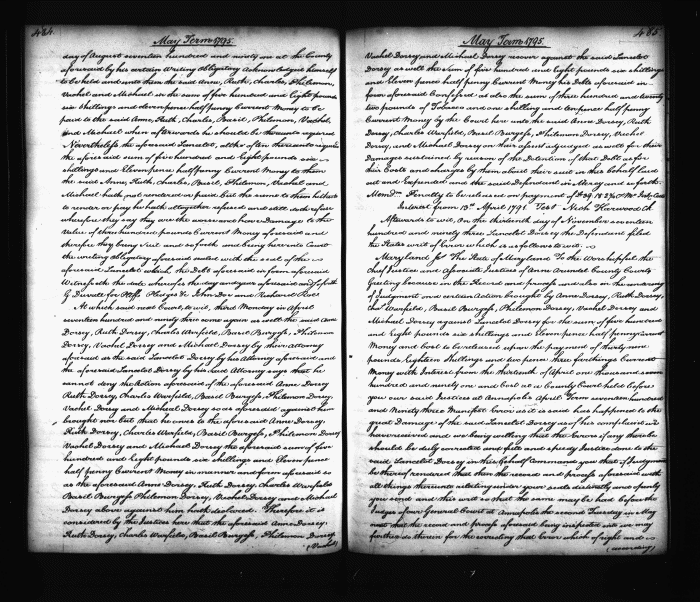 484.
May Term 1795.
day of August seventeen hundred and ninety one at the County
aforesaid by his certain Writing Obligatory Acknowledged himself
to be held and bound unto the said Anne, Ruth, Charles, Philemon,
Vachel and Michael in the sum of five hundred and Eight pounds
six shillings and eleven pence half penny Current Money to be
paid to the said Anne, Ruth, Charles, Basil, Philemon, Vachel
and Michael when afterwards he should be thereunto required
Nevertheless the aforesaid Lancelot, altho often thereunto required
the aforesaid sum of five hundred and Eight pounds six
shillings and Eleven pence half penny Current Money to them
the said Anne, Ruth, Charles, Basil, Philemon, Vachel and
Michael hath not rendered or paid but the same to them hitherto
to render or pay he hath altogether refused and still doth refuse
wherefore they say they are the worse and have Damage to the
Value of three hundred pounds Current Money aforesaid and
therefore they bring suit and so forth and being here into Court
the writing Obligatory aforesaid sealed with the seal of the
aforesaid Lancelot which the Debt aforesaid in form aforesaid
Witnesseth the date whereof is the day and year aforesaid and so forth
G Duvall for Plffs. Pledges &c John Doe and Richard Roe
At which said next Court to wit, third Monday in April
seventeen hundred and ninety three come again as well the said Anne
Dorsey, Ruth Dorsey, Charles Warfield, Basil Burgess, Philemon
Dorsey, Vachel Dorsey and Michael Dorsey by their Attorney
aforesaid as the said Lancelot Dorsey by his Attorney aforesaid and
the aforesaid Lancelot Dorsey by his said Attorney says that he
cannot deny the Action aforesaid of the aforesaid Anne Dorsey
Ruth Dorsey, Charles Warfield, Basil Burgess, Philemon Dorsey
Vachel Dorsey and Michael Dorsey so as aforesaid against him
brought nor but that he owes to the aforesaid Anne Dorsey,
Ruth Dorsey, Charles Warfield, Basil Burgess, Philemon Dorsey
Vachel Dorsey and Michael Dorsey the aforesaid sum of five
hundred and Eight pounds six shillings and Eleven pence
half penny Current Money in manner and form aforesaid so
as the aforesaid Anne Dorsey, Ruth Dorsey, Charles Warfield
Basil Burgess Philemon Dorsey, Vachel Dorsey and Michael
Dorsey above against him hath declared. Therefore it is
considered by the Justices here that the aforesaid Anne Dorsey
Ruth Dorsey, Charles Warfield, Basil Burgess, Philemon Dorsey
(Vachel)
485.
May Term 1795.
Vachel Dorsey and Michael Dorsey recover against the said Lancelot
Dorsey as well the sum of five hundred and eight pounds six shillings
and Eleven pence half penny Current Money his Debt aforesaid in
form aforesaid Confessed as also the sum of three hundred and twenty
two pounds of Tobacco and one shilling and ten pence half penny
Current Money by the Court here unto the said Anne Dorsey, Ruth
Dorsey, Charles Warfield, Basil Burgess, Philemon Dorsey, Vachel
Dorsey, and Michael Dorsey on their assent adjudged as well for their
Damages sustained by reason of the Detention of that Debt as for
their Costs and Charges by them about their suit in this behalf laid
out and Expended and the said Defendant in Mercy and so forth.
Memdm. Penalty to be released on payment of £39.18.2¾ C. My. Int. & Costs
Interest from 13th. April 1791. Test Nich. Harwood Clk
Afterwards to wit, On the thirteenth day of November seventeen
hundred and ninety three Lancelot Dorsey the Defendant filed
the States writ of Error which is as follows to wit.
Maryland sct The State of Maryland To the Worshipfull the
Chief Justice and Associate Justices of Anne Arundel County Court
Greeting because in the Record and process and also in the rendering
of Judgment on a certain Action brought by Anne Dorsey, Ruth Dorsey,
Chas. Warfield, Basil Burgess, Philemon Dorsey, Vachel Dorsey and
Michael Dorsey against Lancelot Dorsey for the sum of five hundred
and eight pounds six shillings and Eleven pence half penny Current
Money and Cost to be released upon the payment of thirty nine
pounds Eighteen Shillings and two pence three farthings Current
Money with Interest from the thirteenth of April one thousand seven
hundred and ninety one and Cost at a County Court held before
you our said Justices at Annapolis April Term seventeen hundred
and Ninety three Manifest Error as it is said has happened to the
great Damage of the said Lancelot Dorsey as of his complaint we
have received and we being willing that the Errors if any there be
should be duly corrected and full and speedy Justice done to the
said Lancelot Dorsey in this behalf command you that if Judgment
be thereof rendered that then the record and process aforesaid with
all things thereunto relating under your seals distinctly and openly
you send and this writ so that the same may be had before the
Judges of our General Court at Annapolis the second Tuesday in May
next that the record and process aforesaid being inspected we may
further do therein for the correcting that Error which of right and
(according)